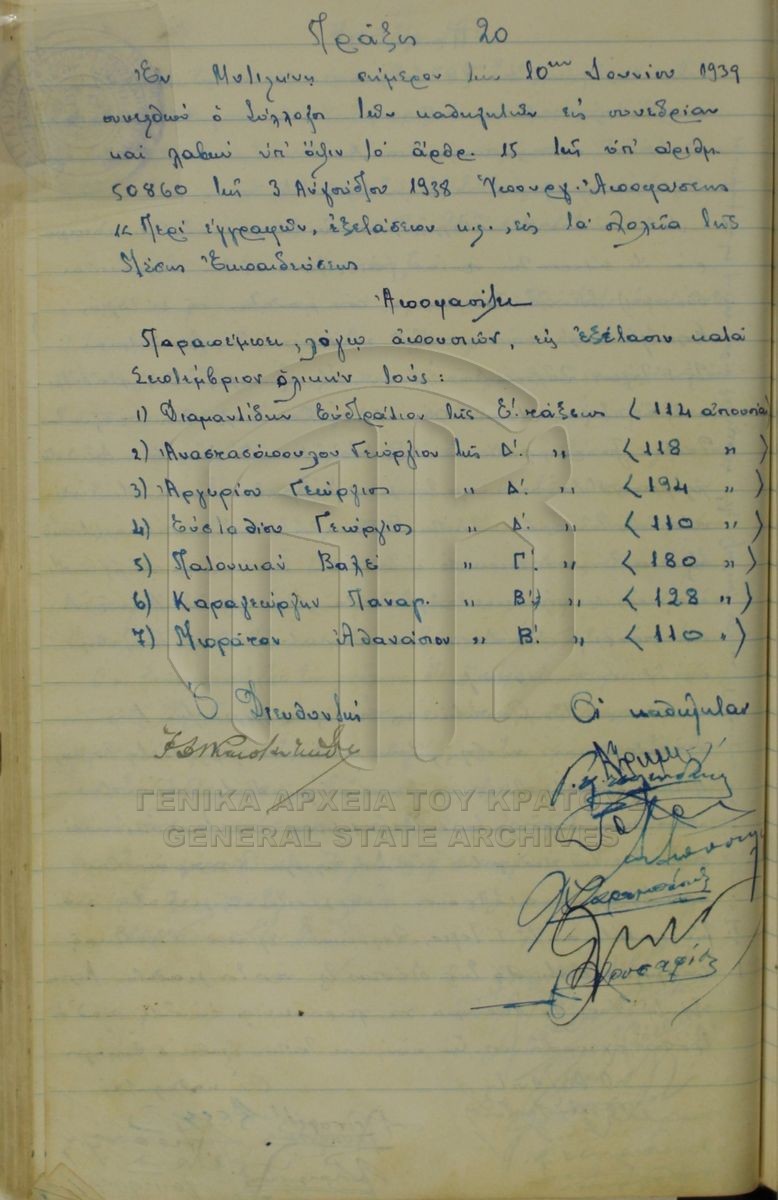 Πρᾶξις 20
Ἐν Μυτιλήνῃ σήμερον τὴν 10ην Ἰουνίου 1939
συνελθὼν ὁ Σύλλογος τῶν καθηγητῶν εἰς συνεδρίαν
καὶ λαβὼν ὑπ' ὄψιν τὸ ἄρθρ. 15 τῆς ὑπ' ἀριθμ.
50860 τῆς 3 Αὐγούστου 1938 Ὑπουργ. Ἀποφάσεως
« Περὶ ἐγγραφῶν, ἐξετάσεων κ.λ., εἰς τὰ σχολεῖα τῆς
Μέσης Ἐκπαιδεύσεως
Ἀποφασίζει
Παραπέμπει, λόγῳ ἀπουσιῶν, εἰς ἐξέτασιν κατὰ
Σεπτέμβριον ὁλικὴν τούς:
1) Διαμαντίδην Εὐστράτιον τῆς Ε΄. τάξεως ( 114 ἀπουσίαι
2) Ἀναστασόπουλον Γεώργιον τῆς Δ΄. „ ( 118 „ )
3) Ἀργυρίου Γεώργιος „ Δ΄. „ ( 194 „ )
4) Εὐσταθίου Γεώργιος „ Δ΄. „ ( 110 „ )
5) Πατουκιὰν Βαλὲ „ Γ΄. „ ( 180 „ )
6) Καραγεώργην Παναγ. „ Β΄. „ ( 128 „ )
7) Μωράτον Ἀθανάσιον „ Β΄. „ ( 110 „ )
Ὁ Διευθυντὴς Οἱ καθηγηταὶ
ΓΕΝΙΚΑ ΑΡΧΕΙΑ ΤΟΥ ΚΡΑΤΟΥΣ
GENERAL STATE ARCHIVES